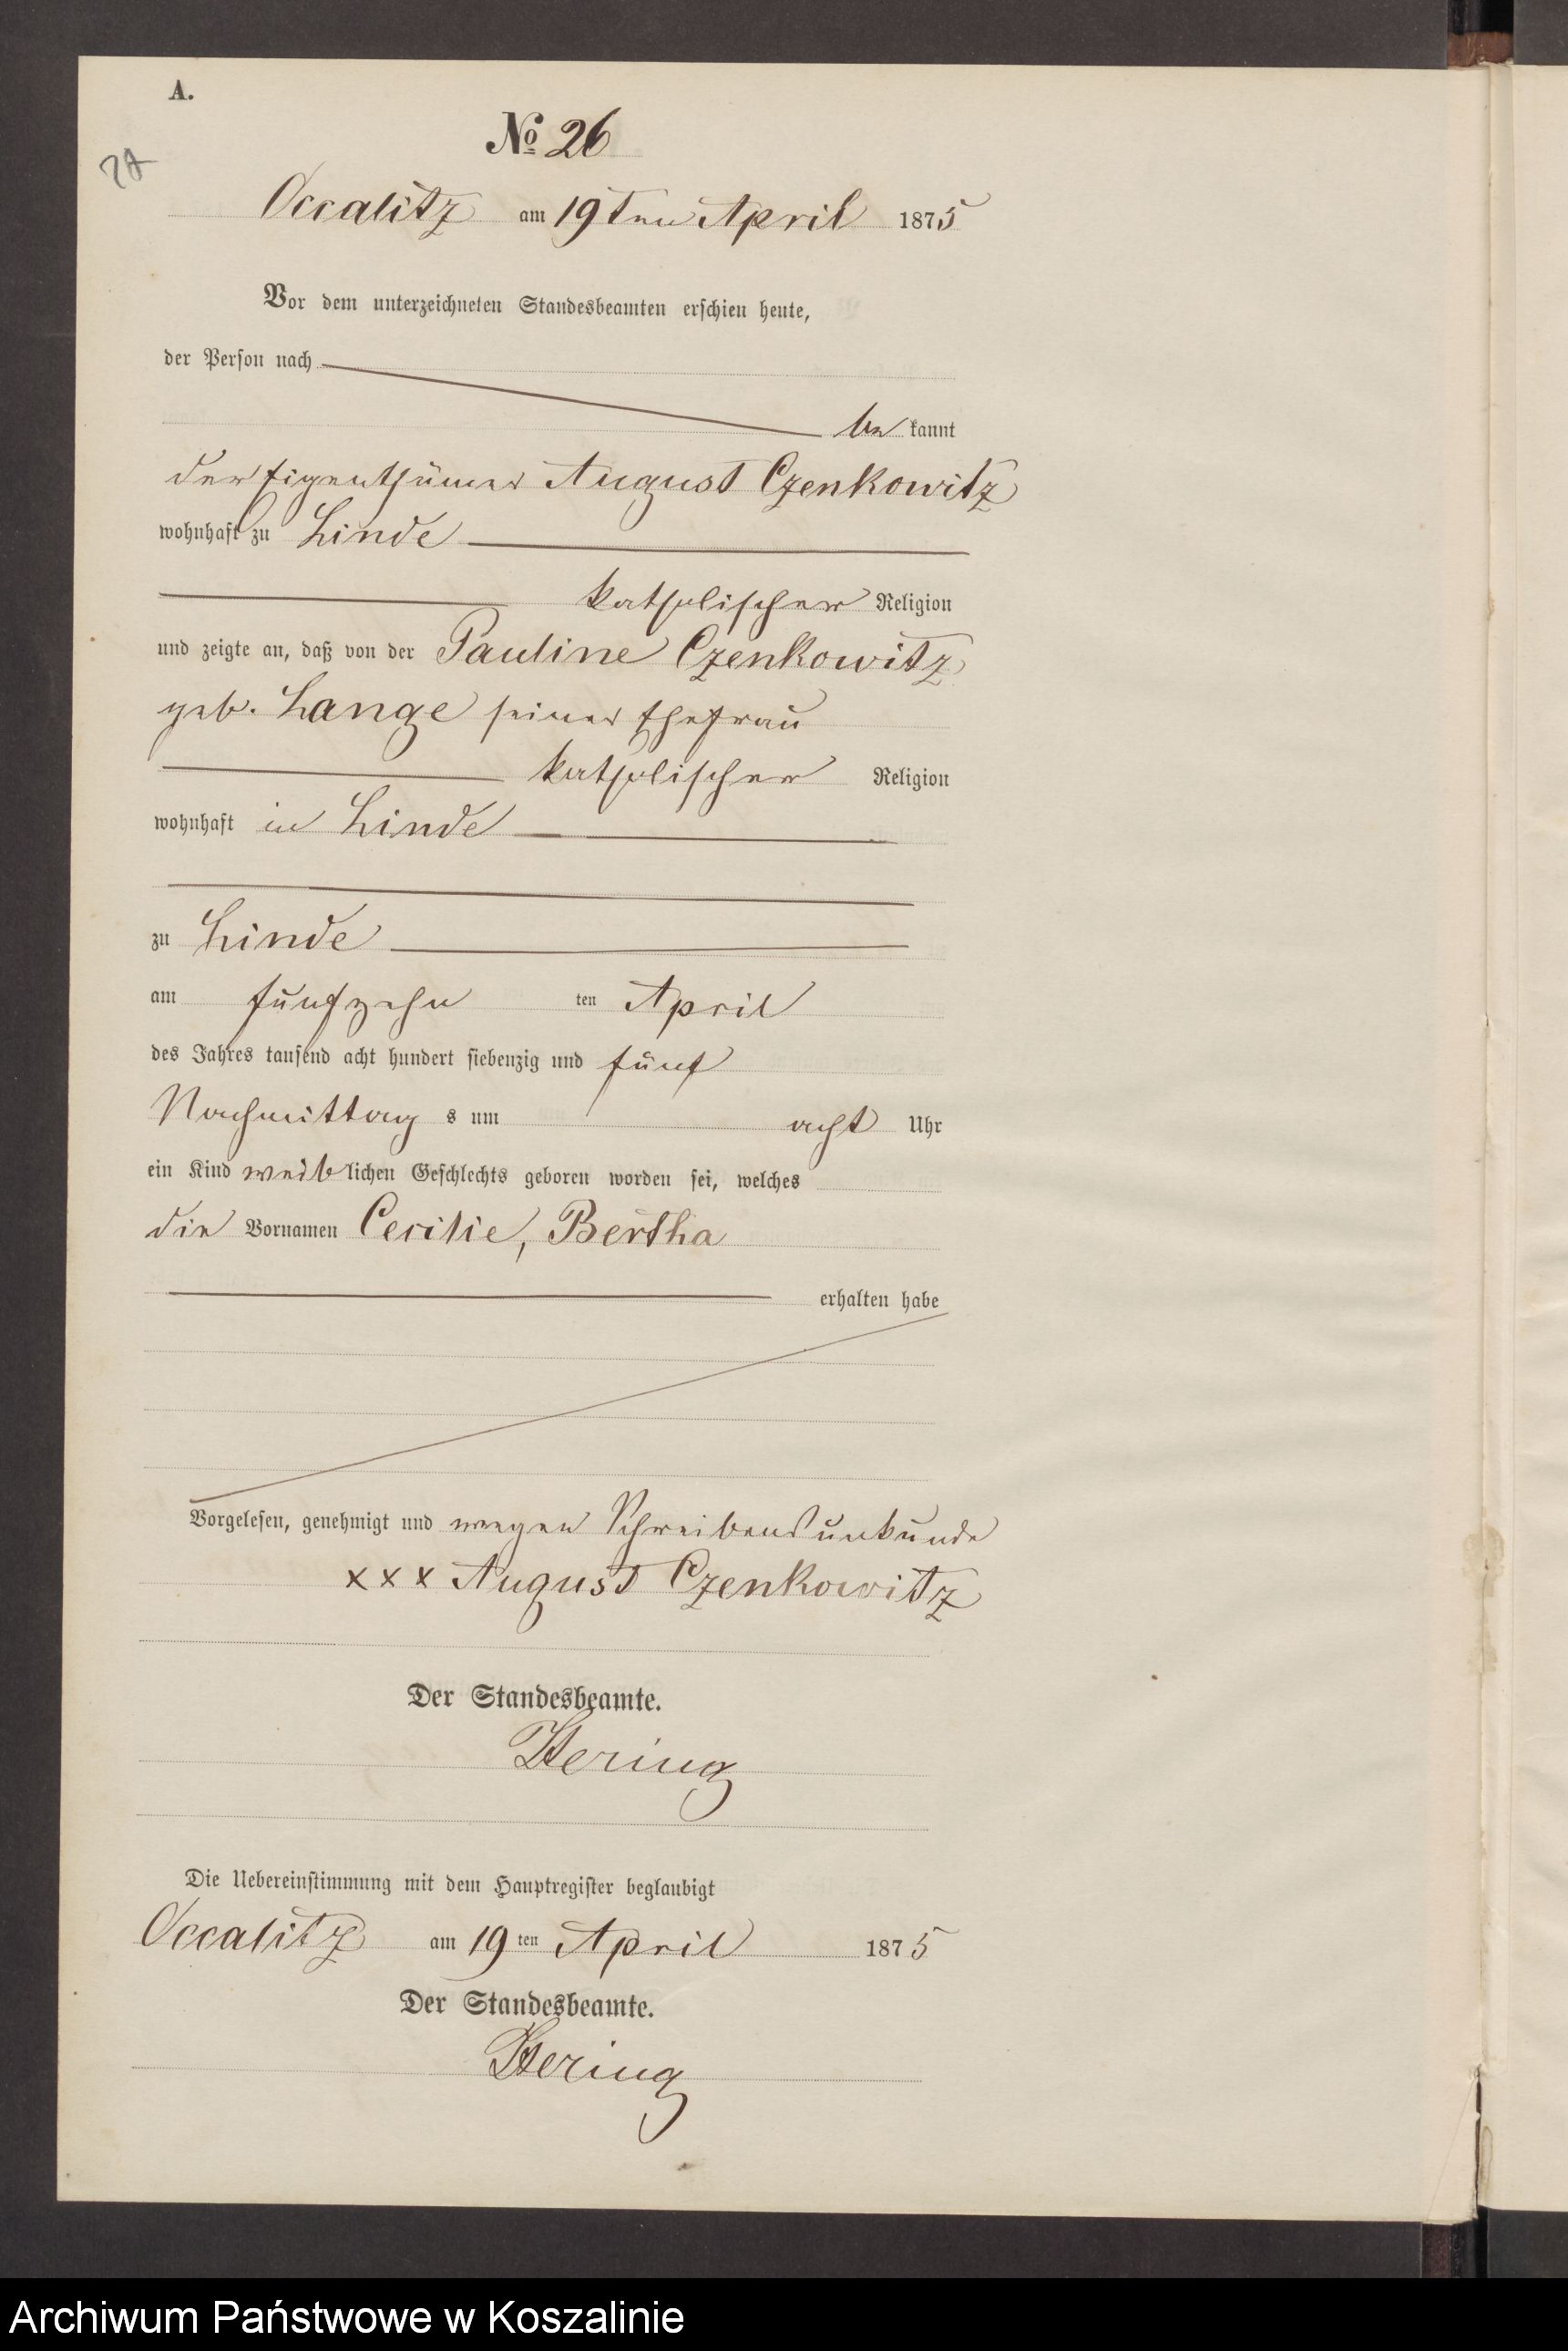 A.
No 26
Occalitz am 19ten April 1875
Vor dem unterzeichneten Standesbeamten erschien heute,
der Person nach
be kannt
der Eigenthümer August Czenkowitz
wohnhaft zu Linde
katholischer Religion
und zeigte an, daß von der Pauline Czenkowitz
geb. Lange seiner Ehefrau
katholischer Religion
wohnhaft in Linde
zu Linde
am fünfzehn ten April
des Jahres tausend acht hundert siebenzig und fünf
Nachmittag s um acht Uhr
ein Kind weiblichen Geschlechts geboren worden sei, welches
die Vornamen Cecilie, Bertha
erhalten habe
Vorgelesen, genehmigt und wegen Schreibensunkunde
xxx August Czenkowitz
Der Standesbeamte.
Hering
Die Uebereinstimmung mit dem Hauptregister beglaubigt
Occalitz am 19 ten April 1875
Der Standesbeamte.
Hering
Archiwum Państwowe w Koszalinie